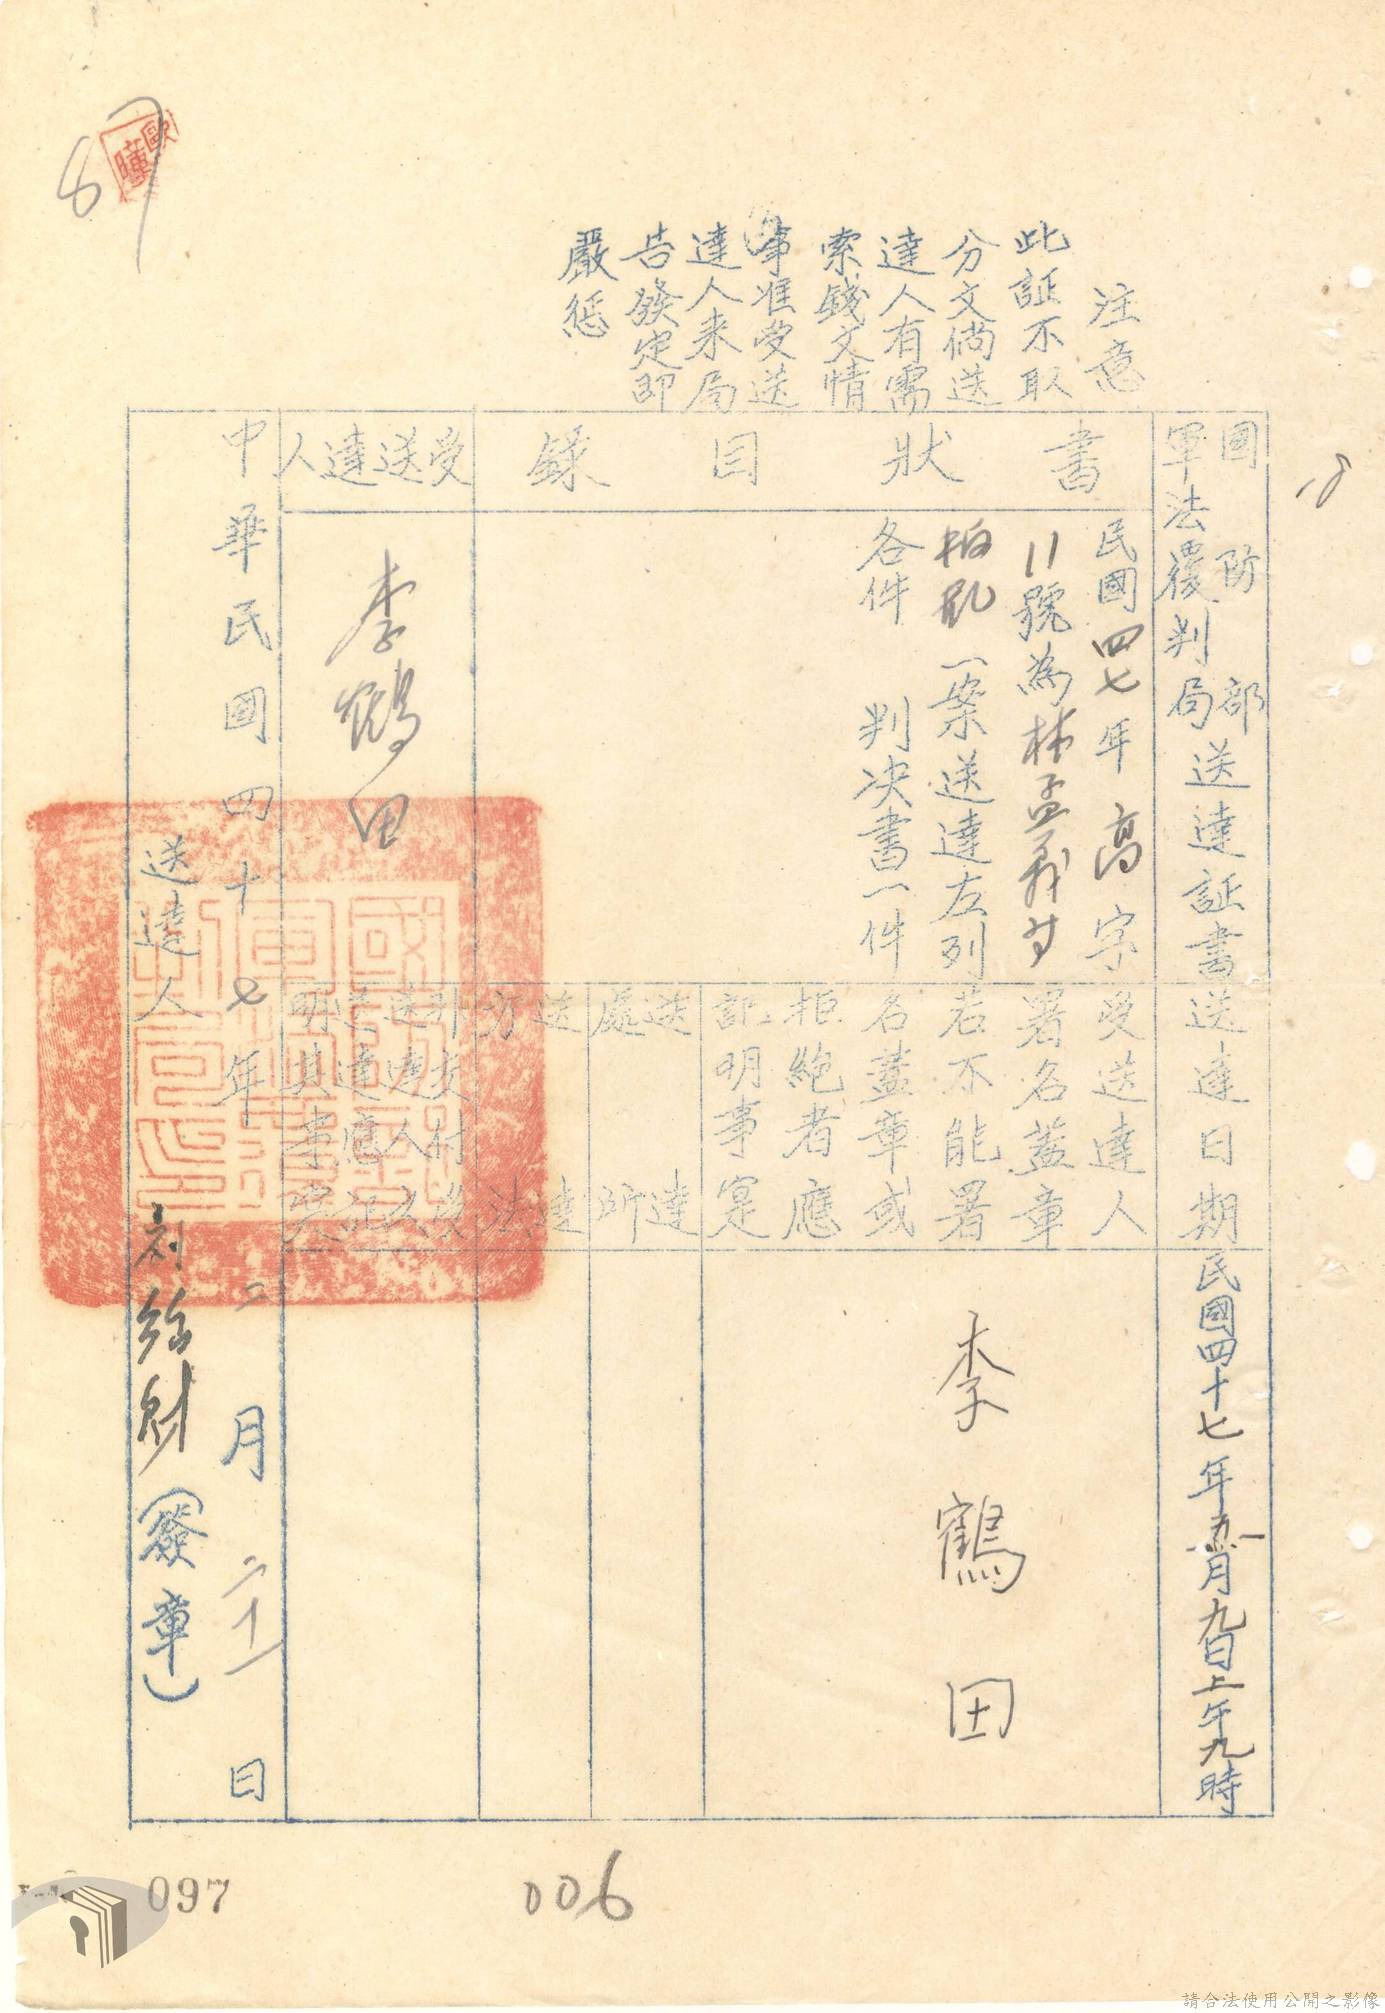 注意
此証不取
分文倘送
達人有需
索錢文情
事准受送
達人来局
告發定即
嚴惩
國防部
軍法覆判局送達証書
送達日期
民國四十七年五月九日上午九時
書狀目錄
民國四七年高字
11號為林孟義等
叛亂一案送達左列
各件 判決書一件
受送達人
署名蓋章
若不能署
名蓋章或
拒絶者應
記明事寔
李鶴田
送達
處所
送達
方法
受送達人
李鶴田
非交付受
送達人
送達應記
明其事寔
中華民國四十七年二月廿一日
送達人
(簽章)
87
097
006
請合法使用公開之影像